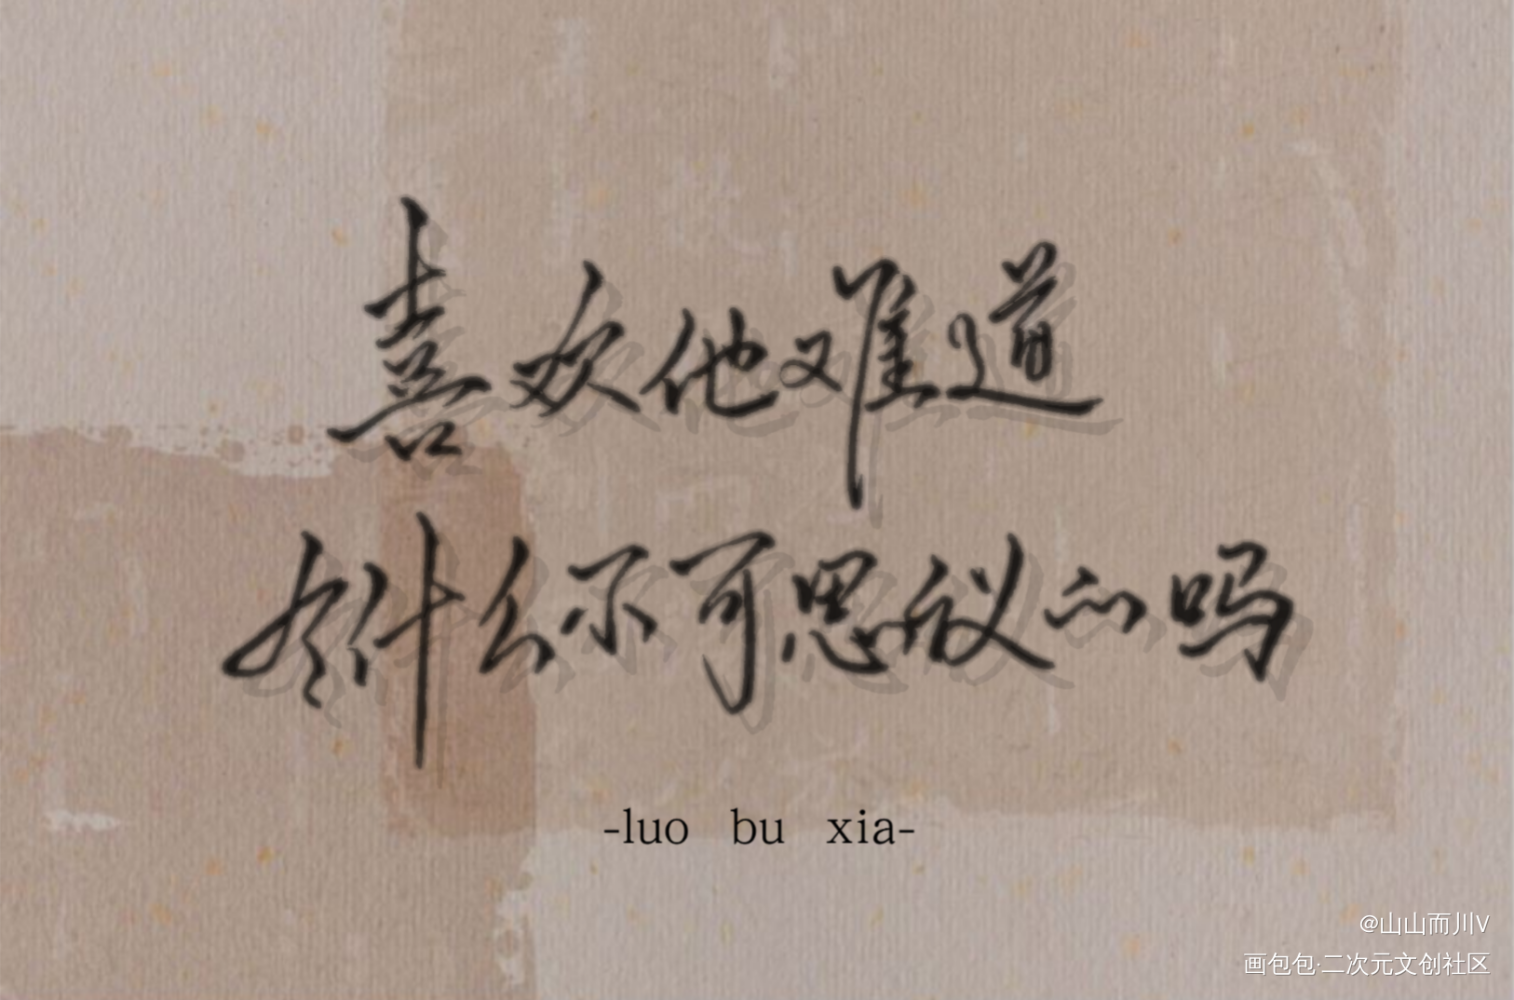 喜欢他难道
是什么不可思议的吗
-luo bu xia-
@山山而川V
画包包·二次元文创社区